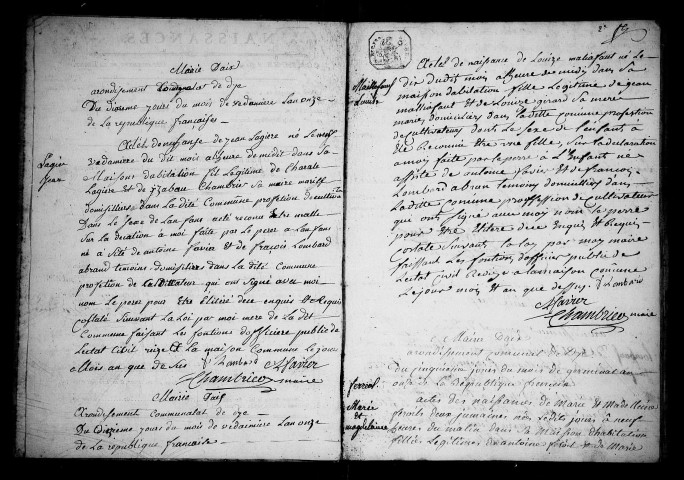 Marie Daix
arondisement Comunalat de dye
Du dixieme jours du mois de vedaimiere Lan onze
de La republique françaises
Lagier
Jean
Actes de nesanse de jean Lagière né Le neuf
vedaimiere du dit mois a heure de midit dans Sa
Maison dabitation fil Legitime de Charle
Lagiere et de Izabau Chambrie Sa maire mariés
domisilliers dans La ditte Commune profetion de cultivate
Dans Le Sexe de Lan fans a eté recounu Etre malle
Sur La decration à moi faite par Le pere a Lan fans
né a Sité de antoine favier et de françois Lombard
abrand temoins domisiliers dans La dité Commune
profetion de Cultivateur qui ont signé avec moi
nom Le peres pour Etre
Costaté Suivant La Loi par moi mere de La dit
Commune faisant Les fontions dofficiere public de
Letat Civil reize A La maison Commune Le jour
Mois an que de Sus Lombard Favier
Chambrier maire
Marie Daix
Arondisement Communalat de dye
Du dixieme jours du mois de vedaimiere Lan onze
de La republique francaise
Maillefaud
Louise
Actes de naisance de Louize maliafaut né Le
dix dudit mois a heure de midi dans Sa
maison dabitation fille Legitime de jean
malliafaut et de Louize girard Sa mere
mariés domicilies dans La ditte comune profestion
de cultivateurs dont Le Sexe de Lenfant a
été Reconnu Etre une fille, Sur La declaration
a moy faite par Le perre a L'Enfant né
assisté de antoine favier et de françois
Lombard abran temoins domicilies dans
La ditte comune proffesion de cultivateur
qui ont signé avec moy nom Le perre
pour Etre
Costaté suivant La Loy par moy maire
faissant Les fontions d'officier public de
Letat civil Redigé a La maison comune
Le jour mois et an que dessus Lombard
Favier
Chambrier maire
Maire Daix
arondisement comunal de dye
Du jour du mois de germinal an
onze de La Republique
ferroul
Marie
et
magdelaine
actes des naisances de Marie et Madelleine
ferouls deux jumaines nées Ledits jours à neuf
heures du matin dans La Maison d'habitation
filles Legitimes de antoine et de Marie